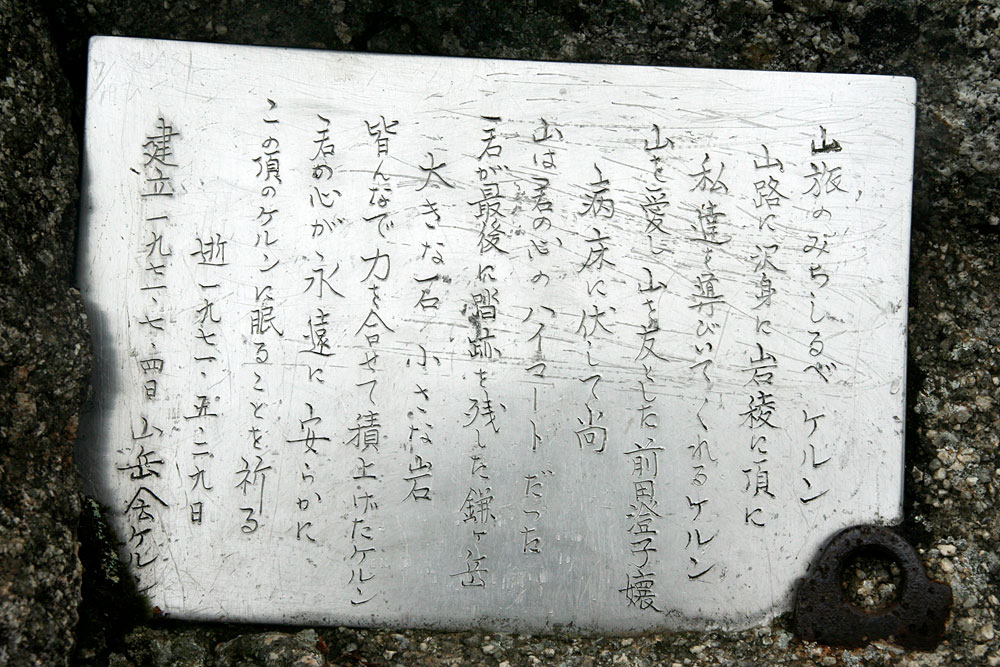 山旅のみちしるべ ケルン
山路に沢身に岩稜に頂に
私達を導びいてくれるケルン
山を愛し山を友とした前田澄子嬢
病床に伏して尚
山は君の心のハイマートだった
君が最後に踏跡を残した鎌ヶ岳
大きな石 小さな岩
皆んなで力を合せて積上げたケルン
君の心が永遠に安らかに
この頂のケルンに眠ることを祈る
逝一九七一、五、二九日
建立一九七一、七、四日 山岳会ケルン